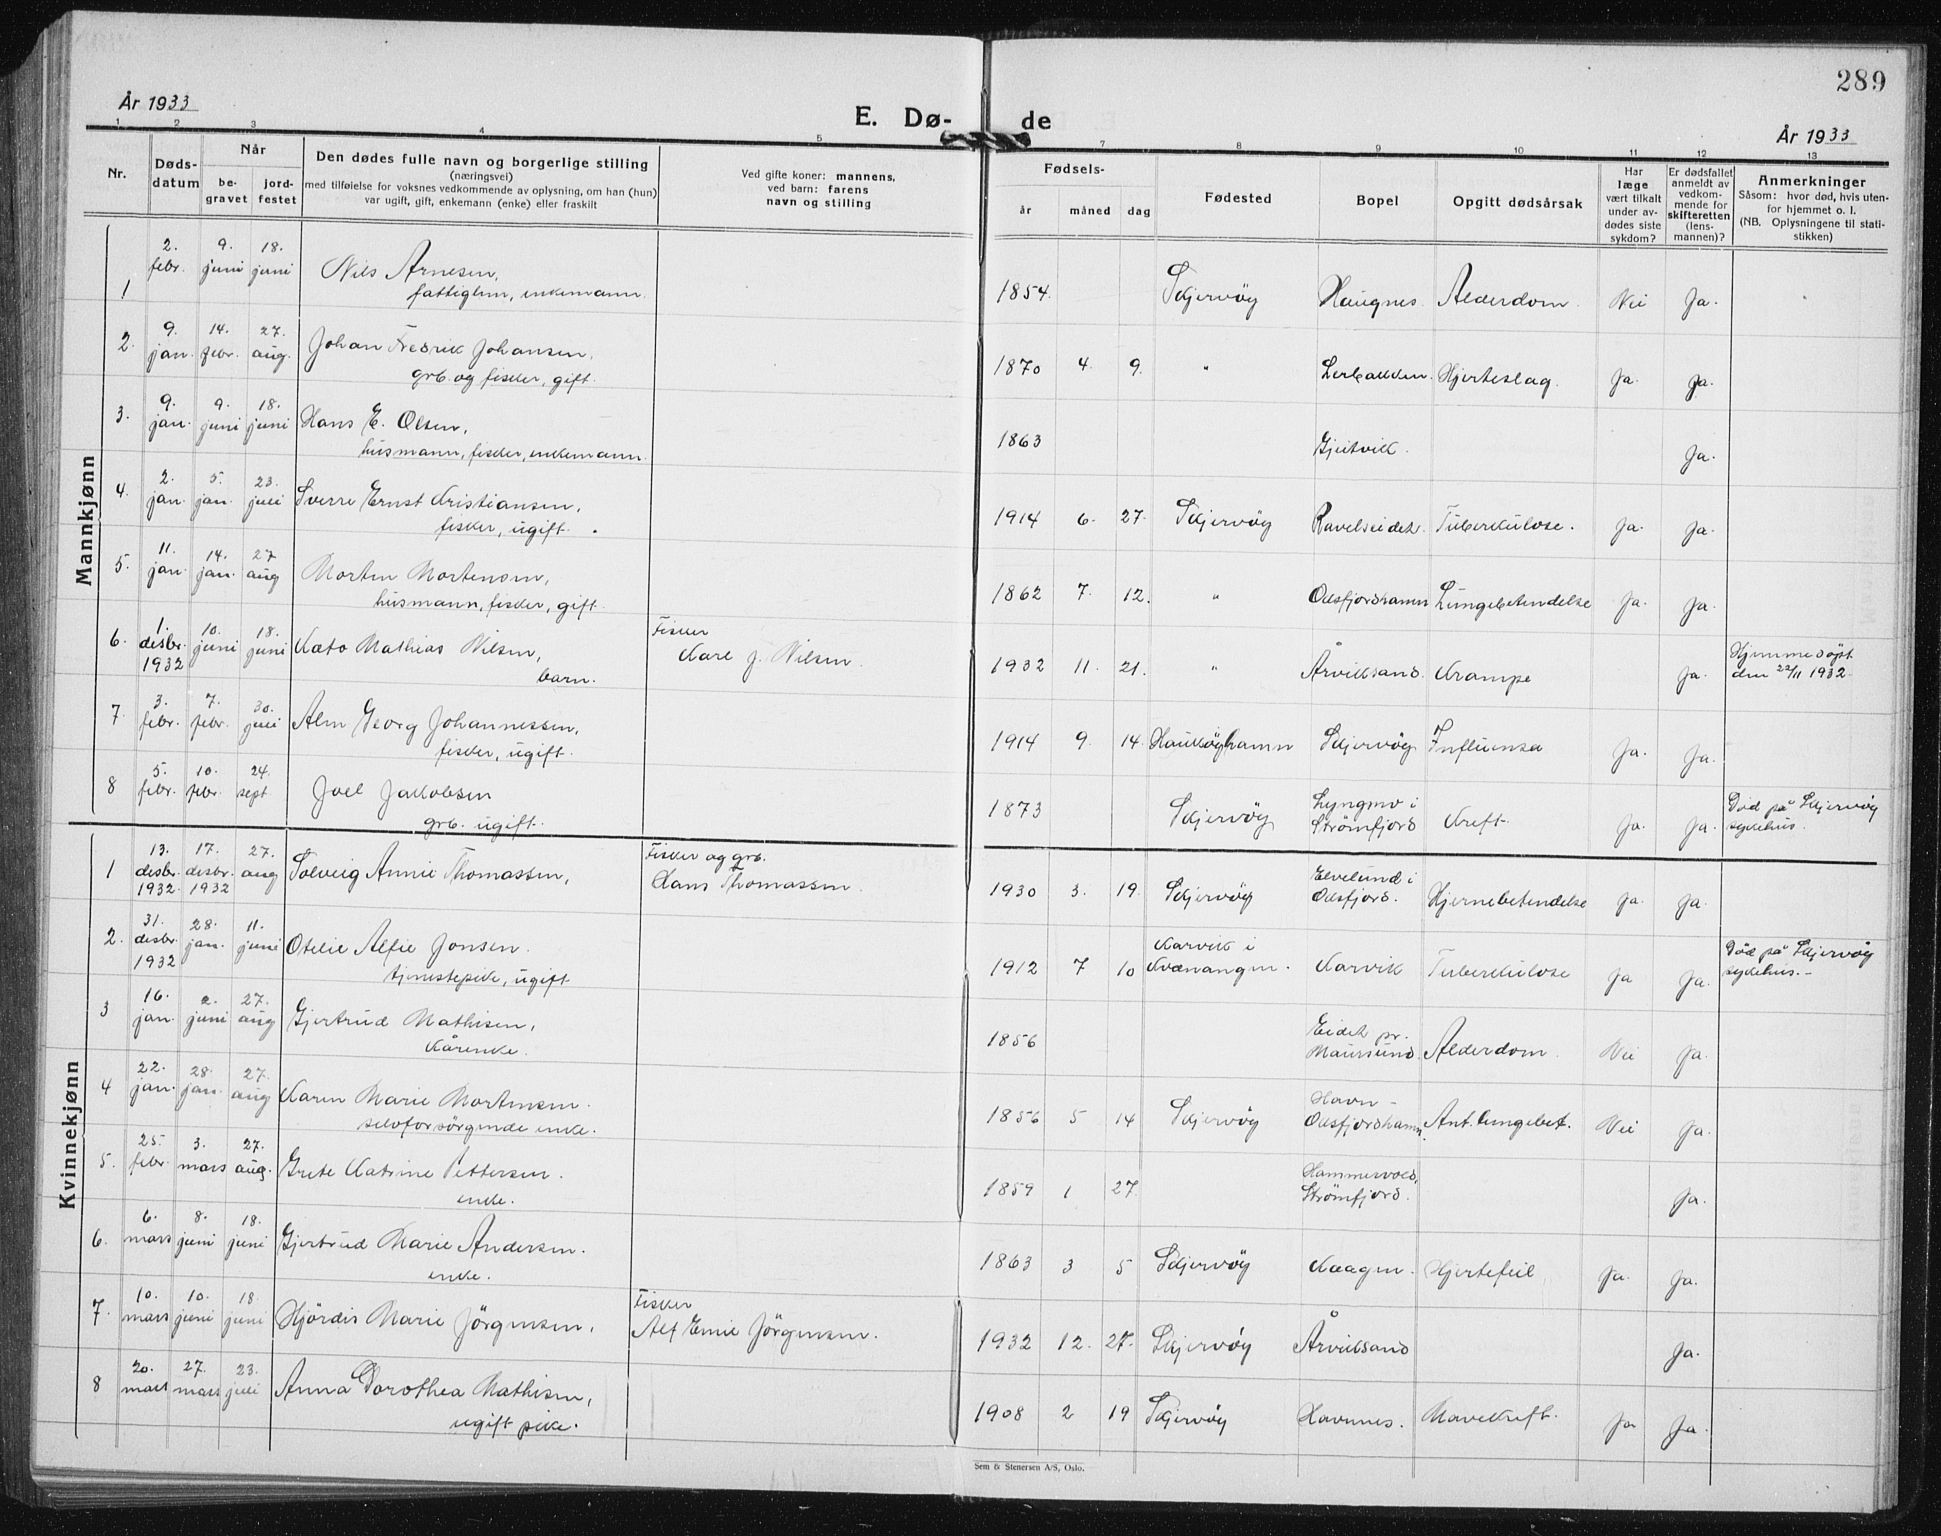 289
År 1933
E. Dø- de
År 1933
1 2 3 4 5 7 8 9 10 11 12 13
Nr.
Døds-
datum
Når
be-
gravet
jord-
festet
Den dødes fulle navn og borgerlige stilling
(næringsvei)
med tilføielse for voksnes vedkommende av oplysning, om han (hun)
var ugift, gift, enkemann (enke) eller fraskilt
Ved gifte koner: mannens,
ved barn: farens
navn og stilling
Fødsels-
år måned dag
Fødested
Bopel
Opgitt dødsårsak
Har
læge
vært tilkalt
under av-
dødes siste
sykdom?
Er dødsfallet
anmeldt av
vedkom-
mende for
skifteretten
(lens-
mannen)?
Anmerkninger
Såsom: hvor død, hvis uten-
for hjemmet o. l.
(NB. Oplysningene til stati-
stikken)
Mannkjønn
1 2. febr. 9. juni 18. juni Nils Arnesen,
fattiglem, enkemann.
1854. Skjervöy Haugnes. Alderdom. Nei Ja.
2. 9. jan. 14. febr. 27. aug. Johan Fredrik Johansen,
grb. og fisker, gift.
1870 4. 9. " Lerbakken. Hjerteslag. Ja. Ja.
3. 9. jan. 9. juni 18. juni Hans E. Olsen,
husmann, fisker, enkemann.
1863 Gjeitvik. Ja.
4. 2. jan. 5. jan. 23. juli Sverre Ernst Kristiansen,
fisker, ugift.
1914 6. 27. Skjervöy Ravelseidet. Tuberkulose. Ja. Ja.
5. 11. jan. 14. jan. 27 aug Morten Mortensen,
husmann, fisker, gift.
1862 7. 12. " Oksfjordhamn Lungebetendelse Ja. Ja.
6. 1. desbr. 1932 10. juni 18. juni Kato Mathias Nilsen,
barn.
Fisker
Karl J. Nilsen.
1932 11. 21. " Årviksand. Krampe Ja.
Hjemmedöpt
den 22/11 1932.
7. 3. febr. 7. febr. 30. juli Alm Georg Johannessen,
fisker, ugift.
1914 9. 14. Hauköyhamn Skjervöy Influensa Ja. Ja.
8 5. febr. 10. febr. 24. sept Joel Jakobsen
grb. ugift.
1873 Skjervöy Lyngmo i
Strömfjord Kreft. Ja. Ja.
Död på Skjervöy
sykehus.
Kvinnekjønn
1 13. desbr. 1932. 17. desbr. 1932 27. aug Solveig Annie Thomassen,
Fisker og grb.
Hans Thomassen.
1930 3. 19. Skjervöy Elvelund i
Oksfjord. Hjernebetendelse Ja. Ja.
2. 31. desbr. 1932 28. jan. 11. juni Otelie Alfie Jonsen.
tjenestepike, ugift.
1912 7 10 Karvik i
Kvænangen. Karvik Tuberkulose Ja Ja.
Död på Skjervöy
sykehus.-
3 16. jan. 2. juni 27. aug Gjertrud Mathisen,
Kårenke.
1856 Eidet pr.
Maursund. Alderdom. Nei Ja.
4 22. jan. 28. jan. 27. aug Karen Marie Mortensen.
selvforsörgende enke.
1856 5 14 Skjervöy Havn -
Oksfjordhamn. Ant. lungebet. Nei Ja.
5. 25. febr. 3. mars 27. aug. Grete Katrine Pettersen.
enke.
1859 1 27. Hammervold,
Strömfjord. Ja.
6. 6. mars 8. juni 18. juni Gjertrud Marie Andersen.
enke.
1863 3 5 Skjervöy Kaagen. Hjertefeil Ja. Ja.
7. 10. mars 10. juni 18. juni Hjördis Marie Jörgensen,
Fisker
Alf Emil Jörgensen.
1932 12. 27. Skjervöy Årviksand Ja.
8 20. mars 27. mars 23. juli Anna Dorothea Mathisen,
ugift pike.
1908 2 19 Skjervöy Havnnes. Mavekreft. Ja Ja.
Sem & Stenersen A/S, Oslo.